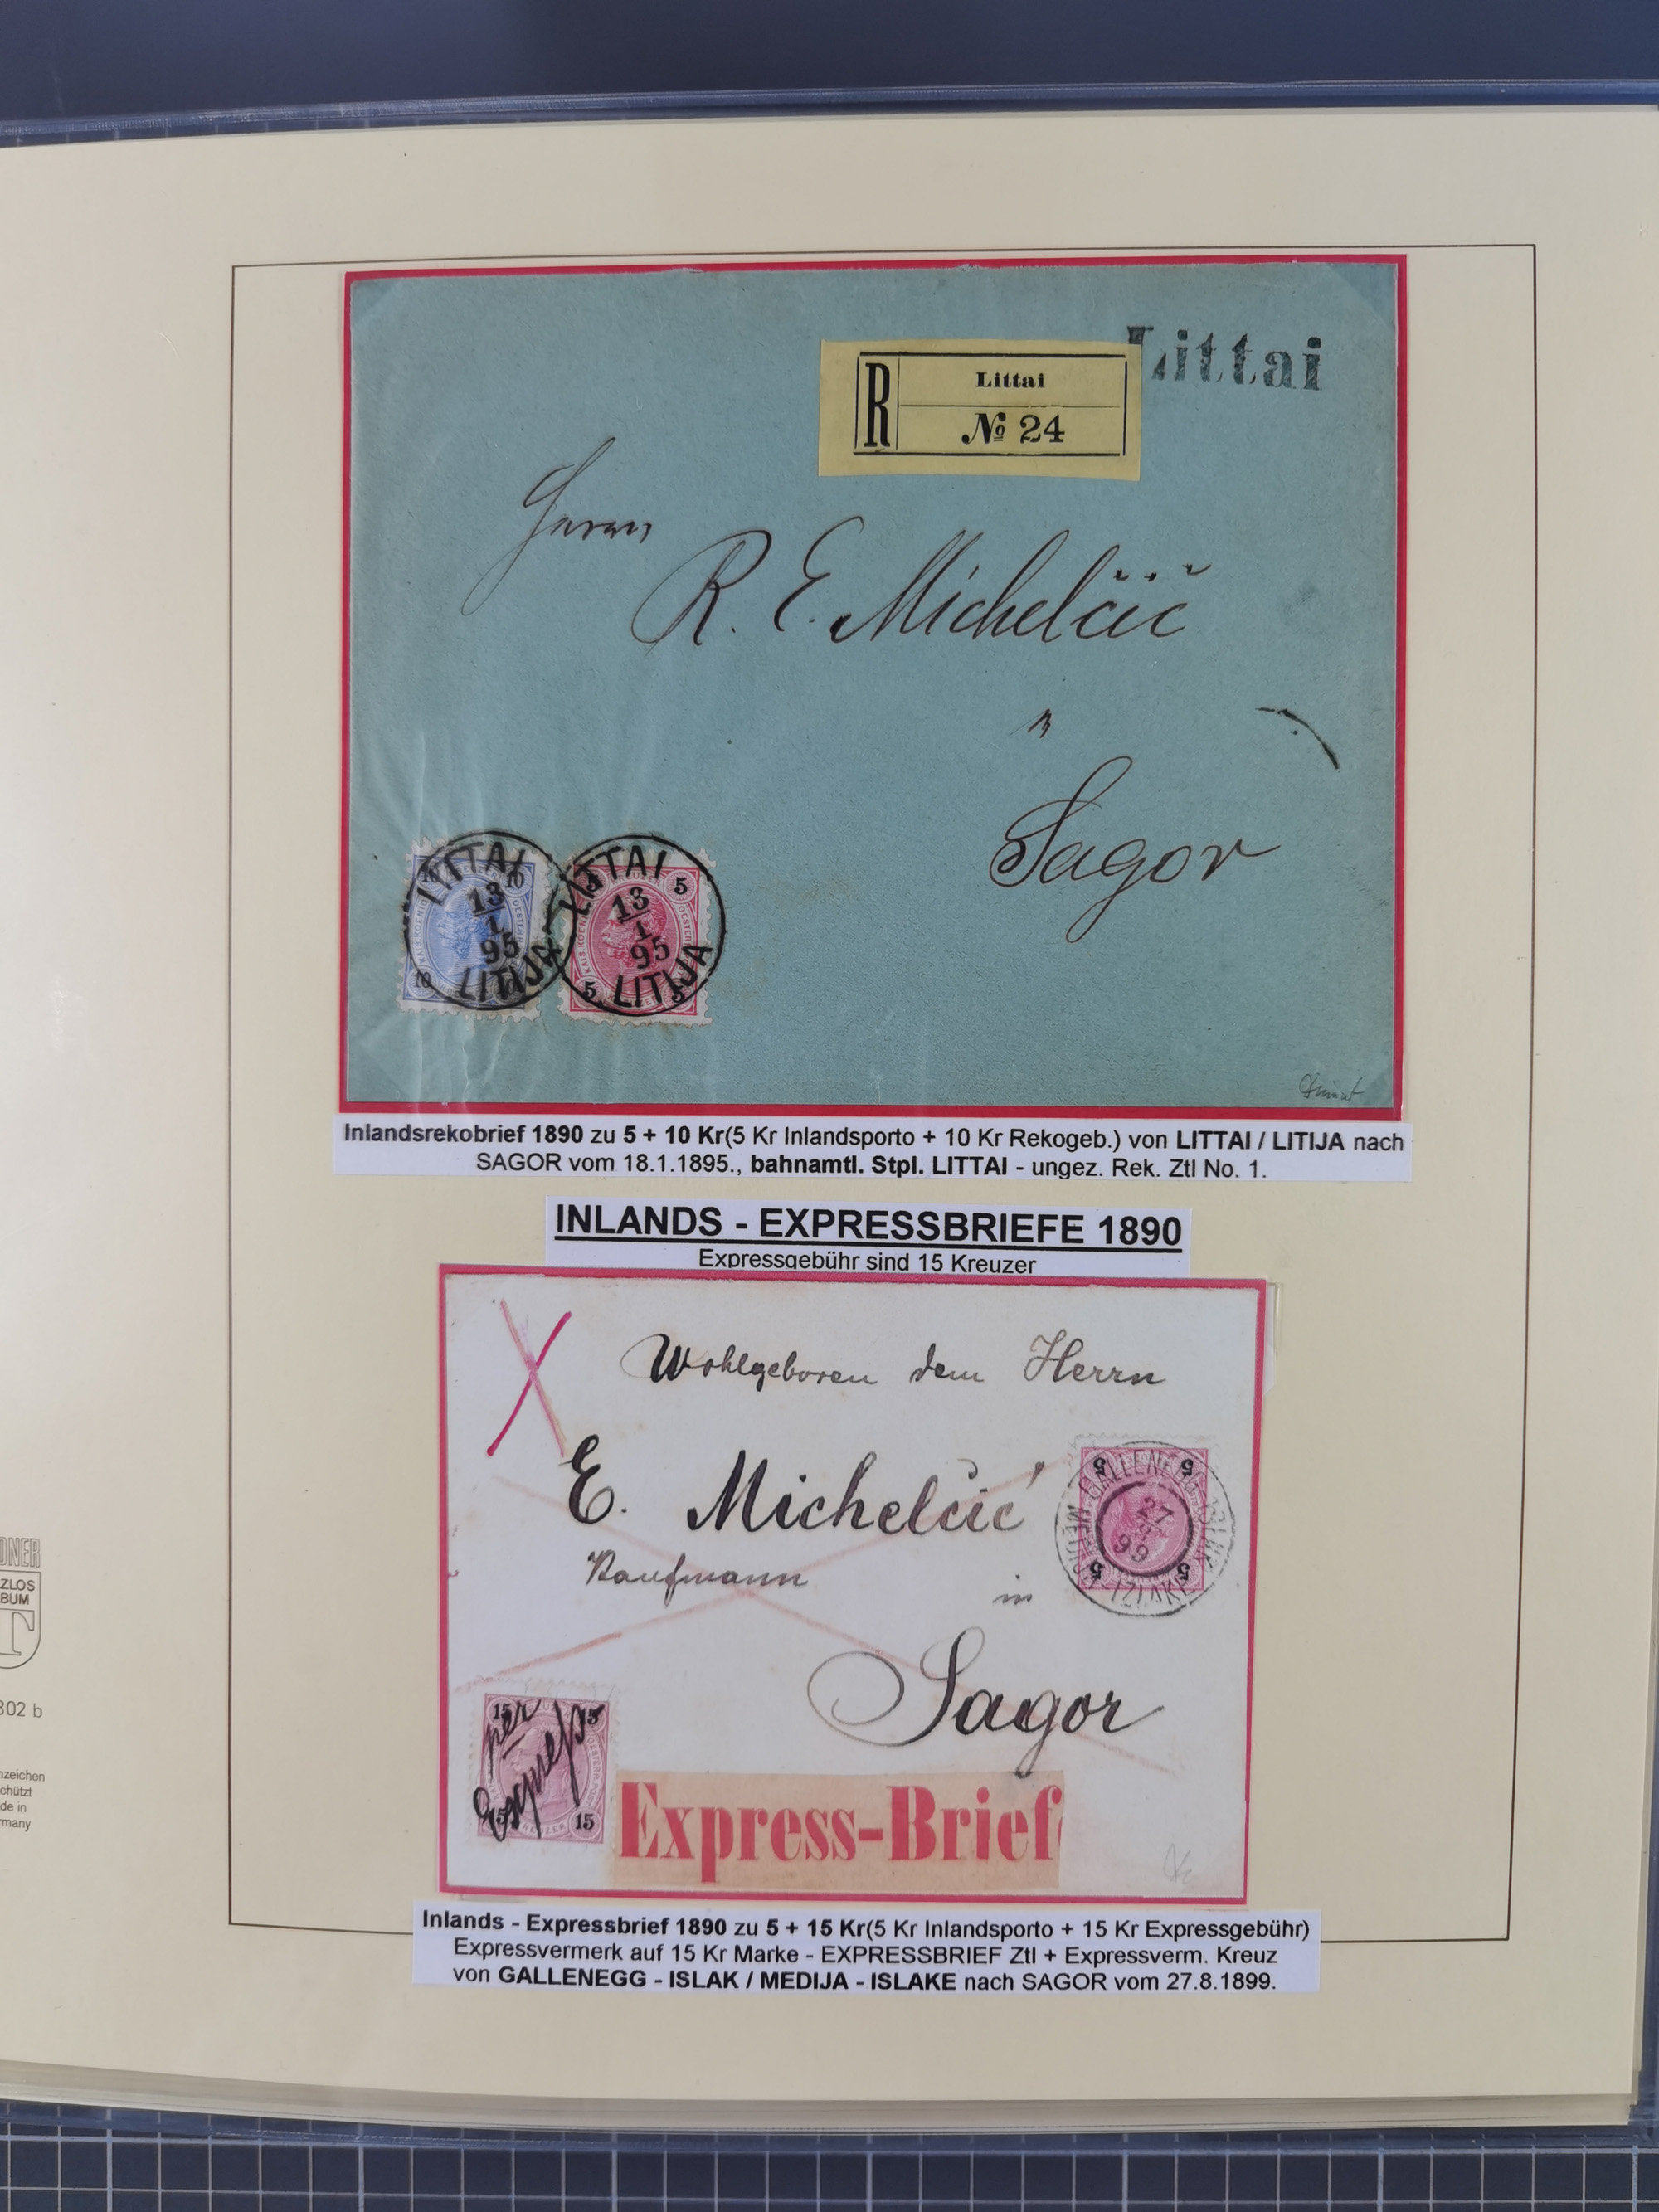 Littai
R
Littai
№ 24
Herrn
R. E. Michelčič
Sagor
LITTAI
13
1
95
LITIJA
10
10
LITTAI
13
1
95
LITIJA
5
5
Inlandsrekobrief 1890 zu 5 + 10 Kr(5 Kr Inlandsporto + 10 Kr Rekogeb.) von LITTAI / LITIJA nach
SAGOR vom 18.1.1895., bahnamtl. Stpl. LITTAI - ungez. Rek. Ztl No. 1.
INLANDS - EXPRESSBRIEFE 1890
Expressgebühr sind 15 Kreuzer
Wohlgeboren dem Herrn
E. Michelčić
Kaufmann in
Sagor
5
5
5
5
27
99
per
Express
15
15
15
Express-Brief
Inlands - Expressbrief 1890 zu 5 + 15 Kr(5 Kr Inlandsporto + 15 Kr Expressgebühr)
Expressvermerk auf 15 Kr Marke - EXPRESSBRIEF Ztl + Expressverm. Kreuz
von GALLENEGG - ISLAK / MEDIJA - ISLAKE nach SAGOR vom 27.8.1899.
DNER
ZLOS
BUM
T
302 b
nzeichen
chützt
de in
rmany